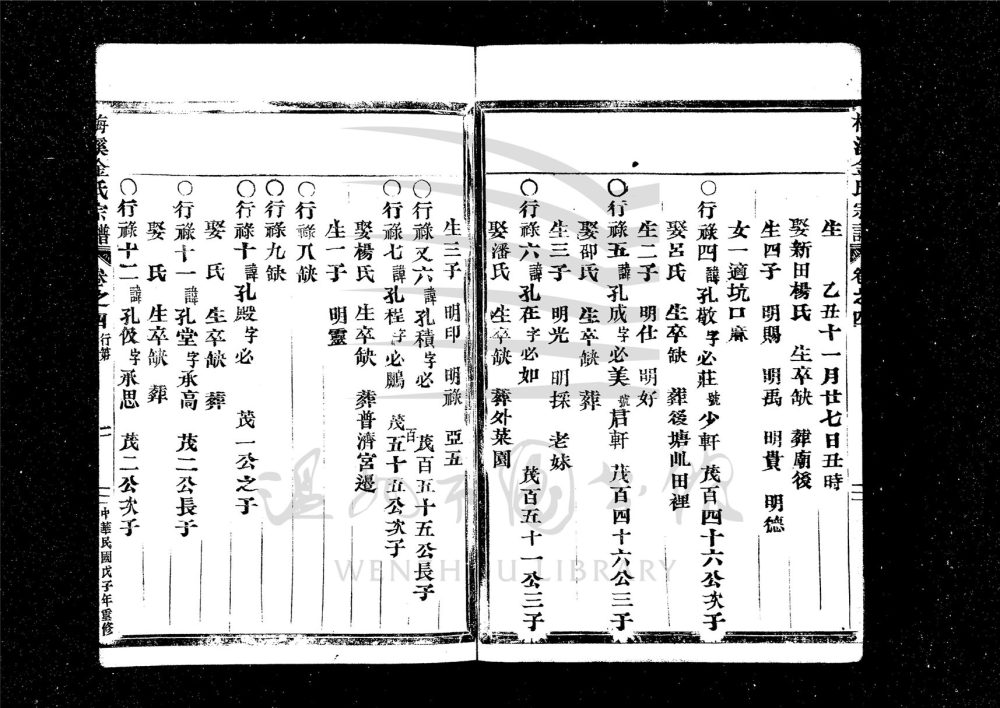 梅溪金氏宗譜 卷之四
生 乙丑十一月廿七日丑時
娶新田楊氏 生卒缺 葬廟後
生四子 明賜 明禹 明貴 明德
女一適坑口麻
○行祿四諱孔敬字必莊號少軒 茂百四十六公次子
娶呂氏 生卒缺 葬後塘乢田裡
生二子 明仕 明好
○行祿五諱孔成字必美號君軒 茂百四十六公三子
娶邵氏 生卒缺 葬
生三子 明光 明採 老妹
○行祿六諱孔在字必如 茂百五十一公三子
娶潘氏 生卒缺 葬外菜園
生三子 明印 明祿 亞五
○行祿又六諱孔積字必 茂百五十五公長子
○行祿七諱孔程字必鵬 茂百五十五公次子
娶楊氏 生卒缺 葬普濟宮邊
生一子 明靈
○行祿八缺
○行祿九缺
○行祿十諱孔殿字必 茂一公之子
娶 氏 生卒缺 葬
○行祿十一諱孔堂字承高 茂二公長子
娶 氏 生卒缺 葬
○行祿十二諱孔伋字承思 茂二公次子
梅溪金氏宗譜 卷之四 行第 二 中華民國戊子年重修
溫州市圖書館
WENZHOU LIBRARY